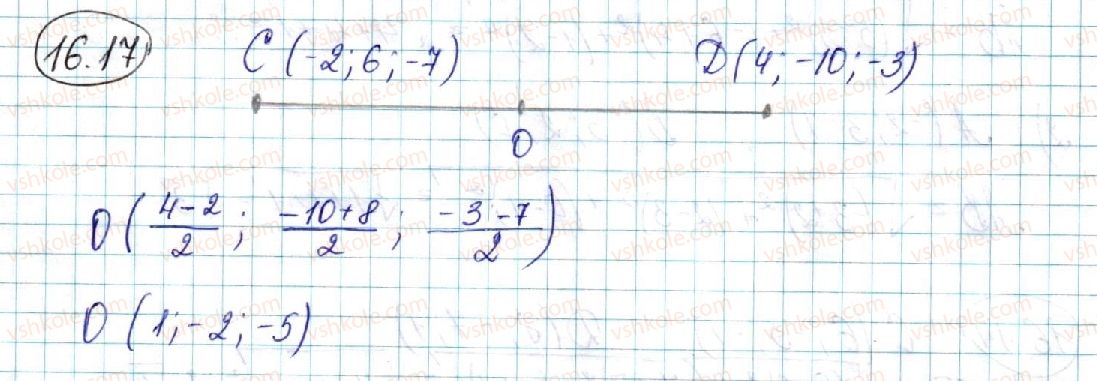 16.17 C (-2; 6; -7) D (4; -10; -3)
O
O ( \frac{4-2}{2} ; \frac{-10+8}{2} ; \frac{-3-7}{2} )
O (1; -2; -5)
vshkole.com